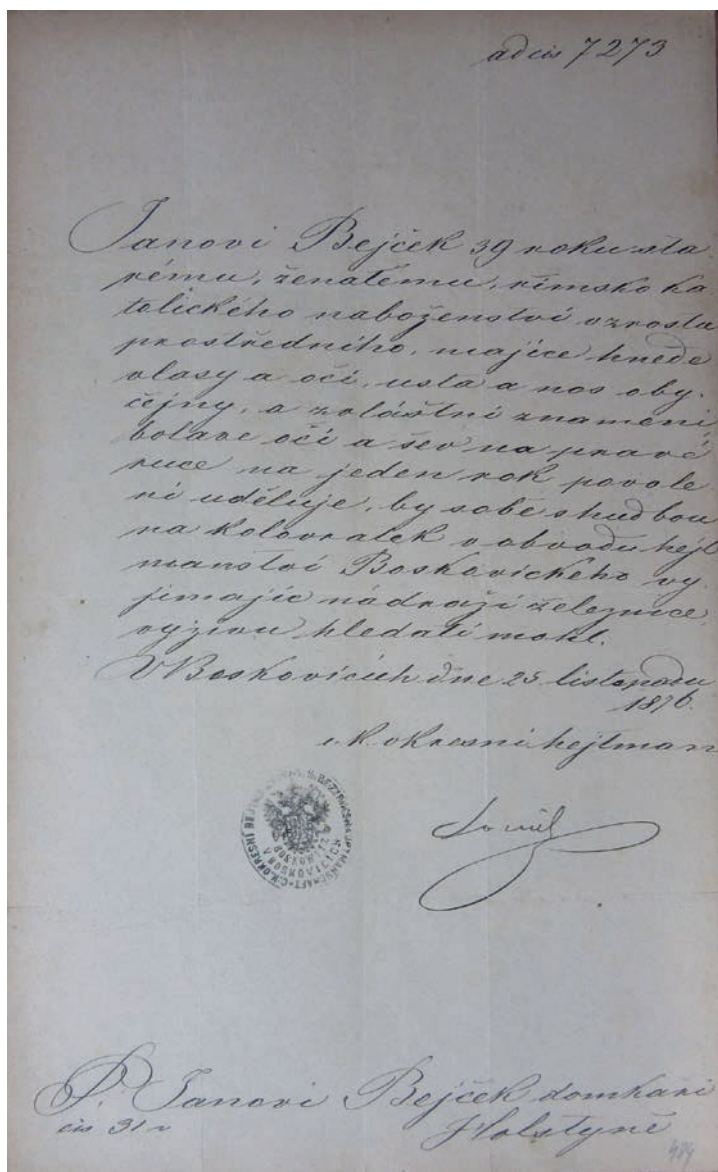 ad čís 7273
Janovi Bejček 39 roku sta
rému, ženatemu, římsko ka
tolického naboženství vzrostu
prostředního, majíce hnědé
vlasy a oči, usta a nos oby-
čejny, a zvláštní znamení:
bolave oči a šev na pravé
ruce na jeden rok povole
ní uděluje, by sobě s hudbou
na kolovratek v obvodu hejt
manství Boskovického vy-
jimajíc nádraží železnice,
vyživu hledati mohl.
V Boskovicích dne 25 listopadu
1876.
c. k. okresní hejtman
P. Janovi Bejček domkaři
čís 31 v Holstyně
489